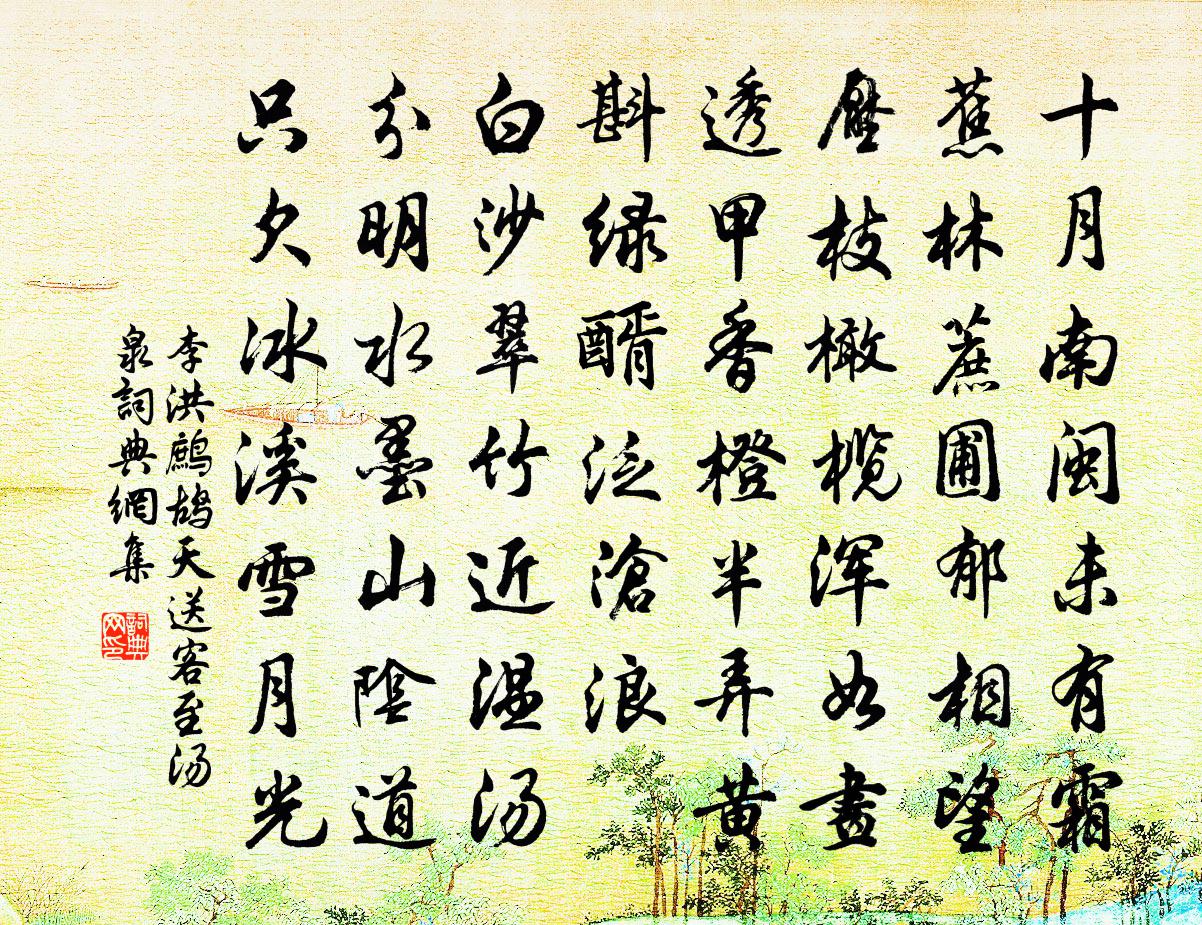 十月南闽未有霜
蕉林蔗圃郁相望
压枝橄榄浑如画
透甲香橙半弄黄
斟绿醑泛沧浪
白沙翠竹近温汤
分明水墨山阴道
只欠冰溪雪月光
李洪鹧鸪天送客至汤
泉詞典網集
詞典网印